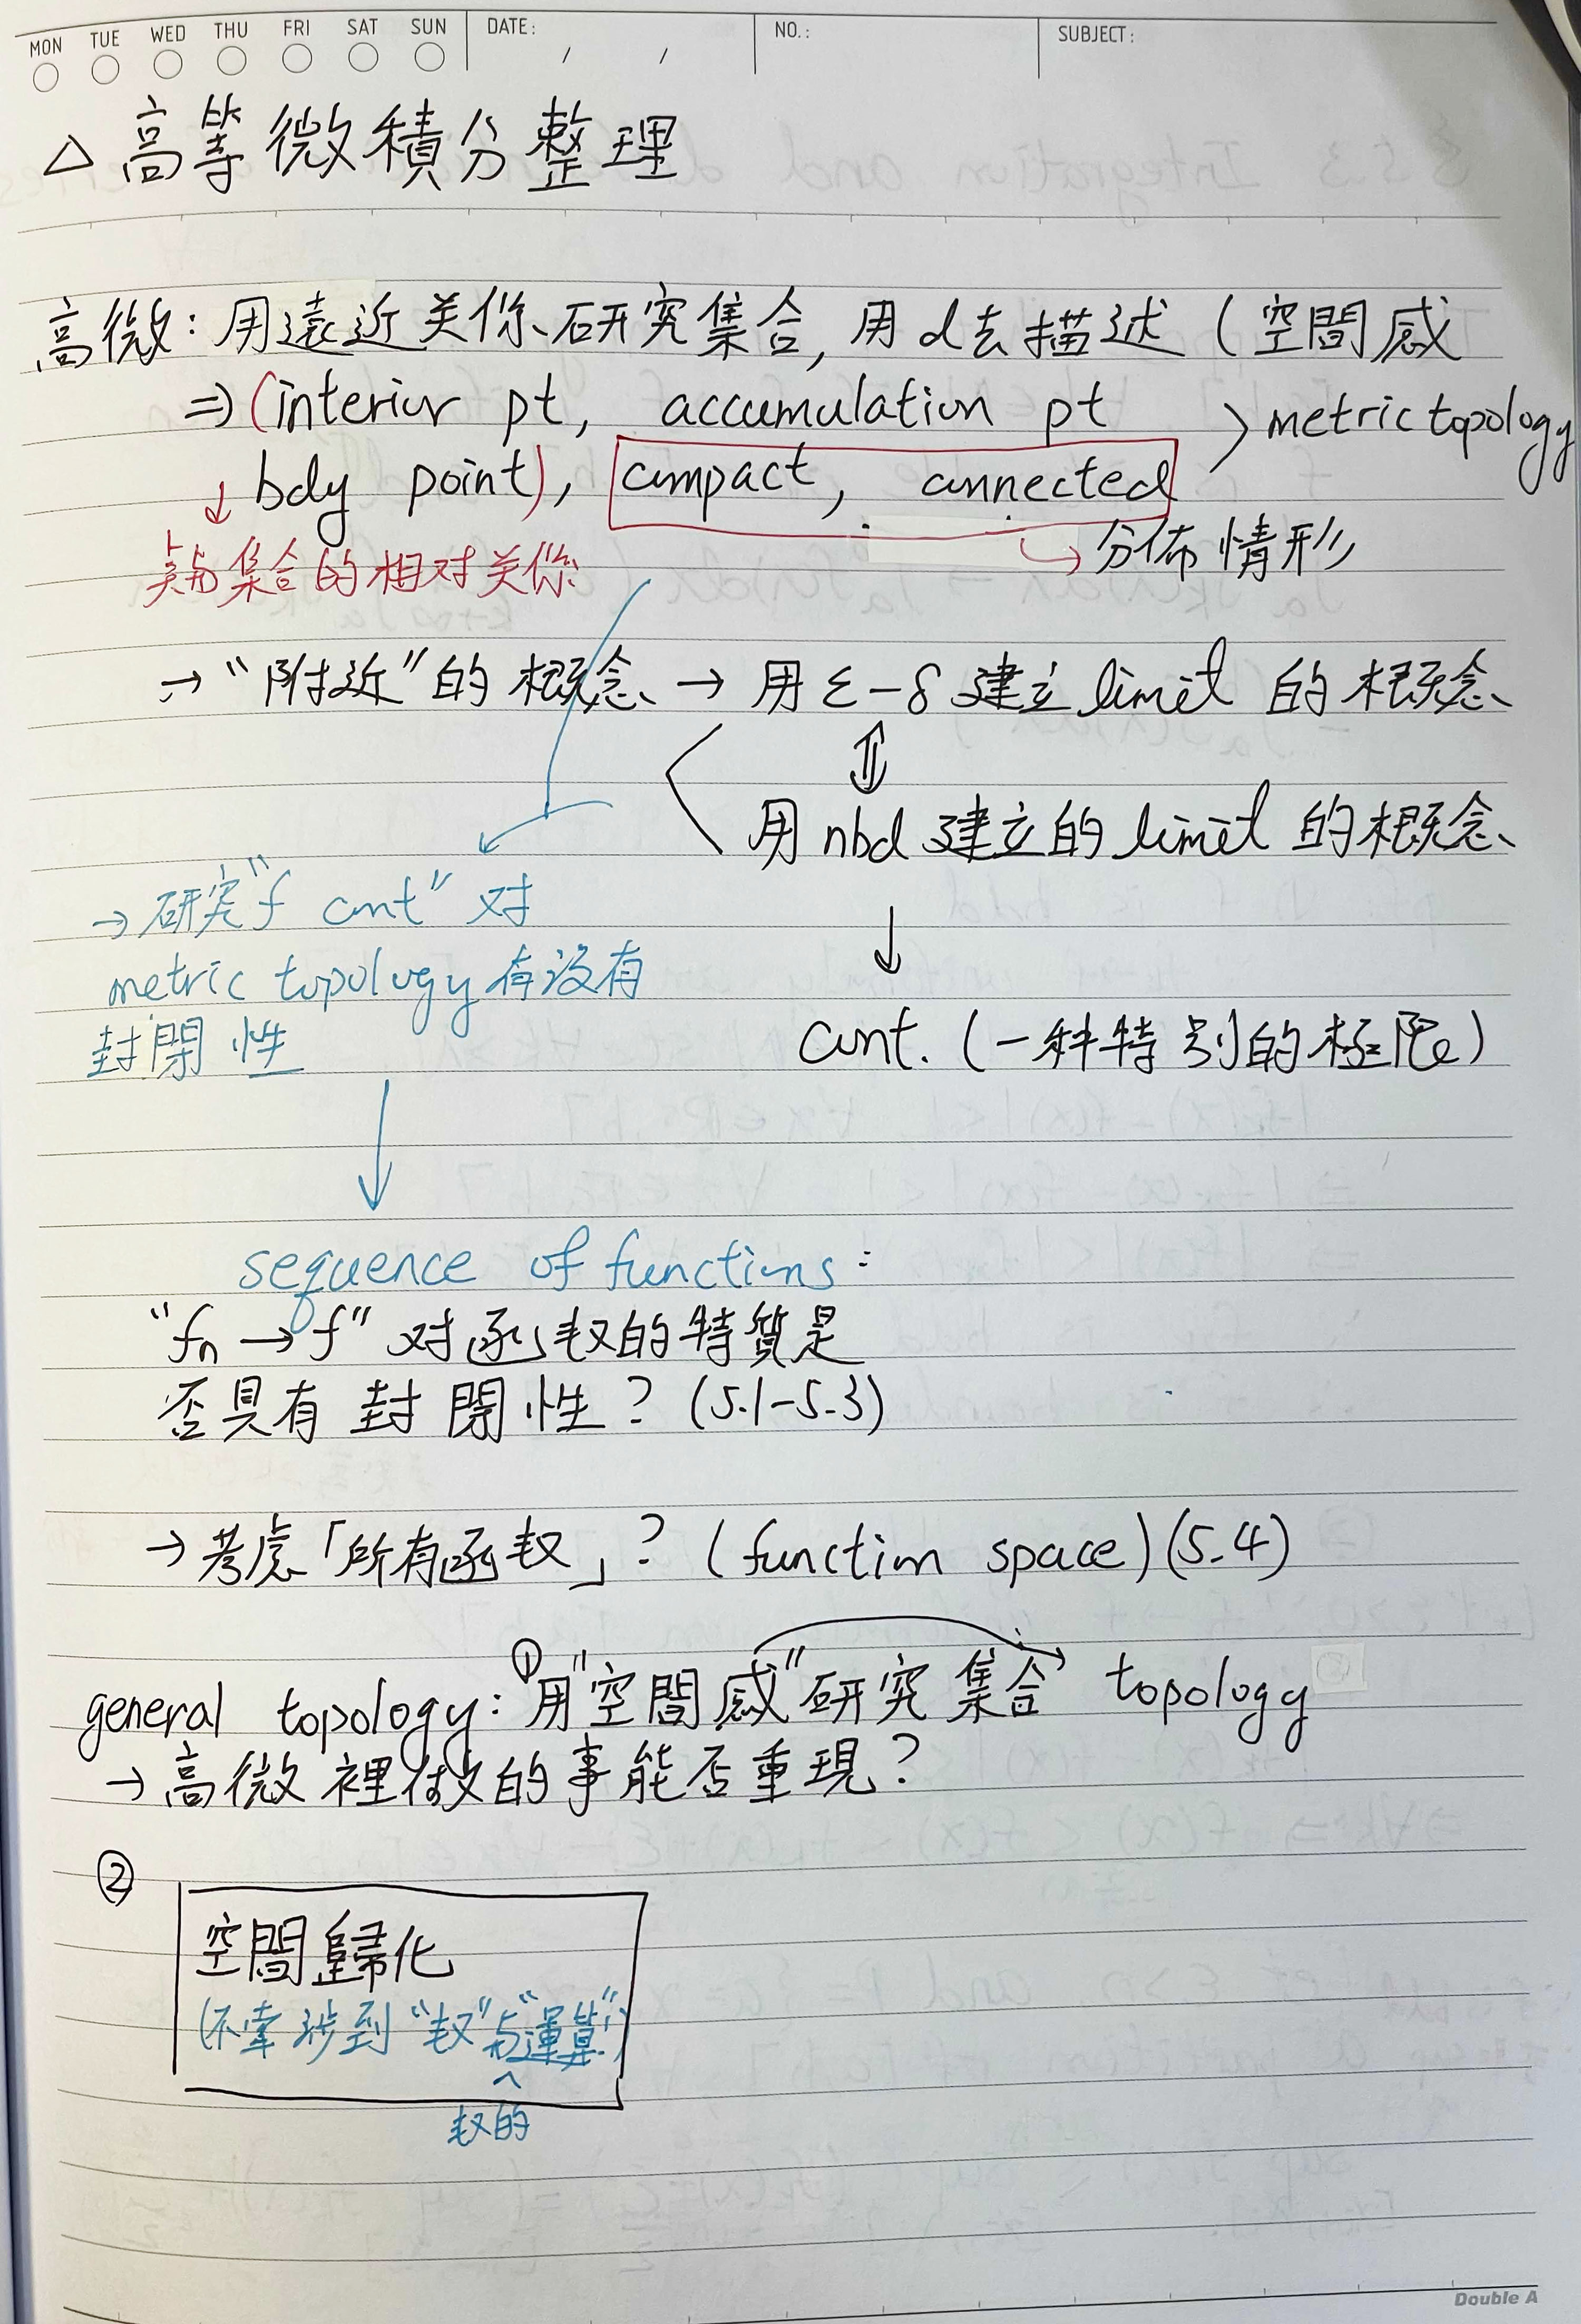 MON TUE WED THU FRI SAT SUN DATE: / / NO.: SUBJECT:
△ 高等微積分整理
高微: 用遠近关係研究集合, 用d去描述 (空間感
⇒ (interior pt, accumulation pt
> metric topology
bdy point), compact, connected
↓
↳ 分佈情形
点与集合的相对关係
→ "附近"的概念 → 用 ε-δ 建立 limit 的概念
⇕
用 nbd 建立的 limit 的概念
→ 研究"f cont" 对
↓
metric topology 有沒有
封閉性
cont. (一种特别的極限)
↓
sequence of functions:
"fn → f" 对函数的特質是
否具有封閉性? (5.1-5.3)
→ 考慮「所有函数」? (function space) (5.4)
general topology: ① 用"空間感"研究集合 topology
→ 高微裡做的事能否重現?
②
空間歸化
(不牽涉到"数"与"運算")
^
数的
Double A